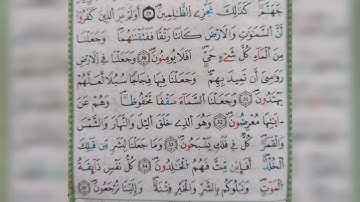 جَهَنَّمَ ۗ كَذٰلِكَ نَجْزِى الظّٰلِمِيْنَ ۝٢٩ اَوَلَمْ يَرَ الَّذِيْنَ كَفَرُوْٓا
اَنَّ السَّمٰوٰتِ وَالْاَرْضَ كَانَتَا رَتْقًا فَفَتَقْنٰهُمَا ۗ وَجَعَلْنَا
مِنَ الْمَاۤءِ كُلَّ شَيْءٍ حَيٍّ ۗ اَفَلَا يُؤْمِنُوْنَ ۝٣٠ وَجَعَلْنَا فِى الْاَرْضِ
رَوَاسِيَ اَنْ تَمِيْدَ بِهِمْ ۖ وَجَعَلْنَا فِيْهَا فِجَاجًا سُبُلًا لَّعَلَّهُمْ
يَهْتَدُوْنَ ۝٣١ وَجَعَلْنَا السَّمَاۤءَ سَقْفًا مَّحْفُوْظًا ۚ وَهُمْ عَنْ
اٰيٰتِهَا مُعْرِضُوْنَ ۝٣٢ وَهُوَ الَّذِيْ خَلَقَ الَّيْلَ وَالنَّهَارَ وَالشَّمْسَ
وَالْقَمَرَ ۗ كُلٌّ فِيْ فَلَكٍ يَّسْبَحُوْنَ ۝٣٣ وَمَا جَعَلْنَا لِبَشَرٍ مِّنْ قَبْلِكَ
الْخُلْدَ ۗ اَفَا۟ىِٕنْ مِّتَّ فَهُمُ الْخٰلِدُوْنَ ۝٣٤ كُلُّ نَفْسٍ ذَاۤىِٕقَةُ
الْمَوْتِ ۗ وَنَبْلُوْكُمْ بِالشَّرِّ وَالْخَيْرِ فِتْنَةً ۗ وَاِلَيْنَا تُرْجَعُوْنَ ۝٣٥